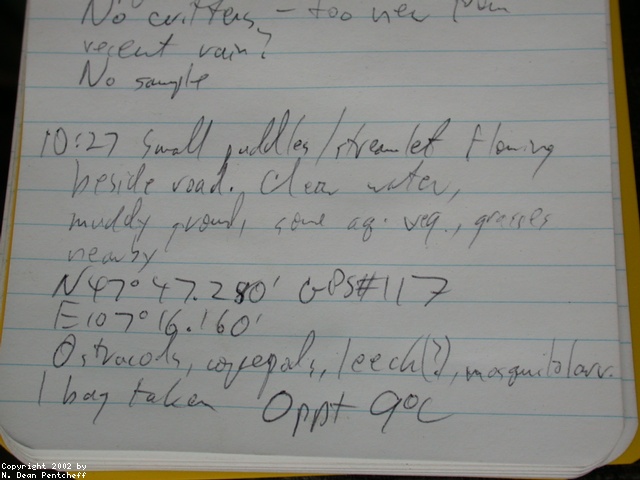 No critters – too new from
recent rain?
No sample
10:27 Small puddles/streamlet flowing
beside road. Clear water,
muddy ground, some aq. veg., grasses
nearby
N47°47.280' GPS#117
E107°16.160'
Ostracods, copepods, leech(?), mosquito larv.
1 bag taken 0ppt 9°C
Copyright 2002 by
N. Dean Pentcheff